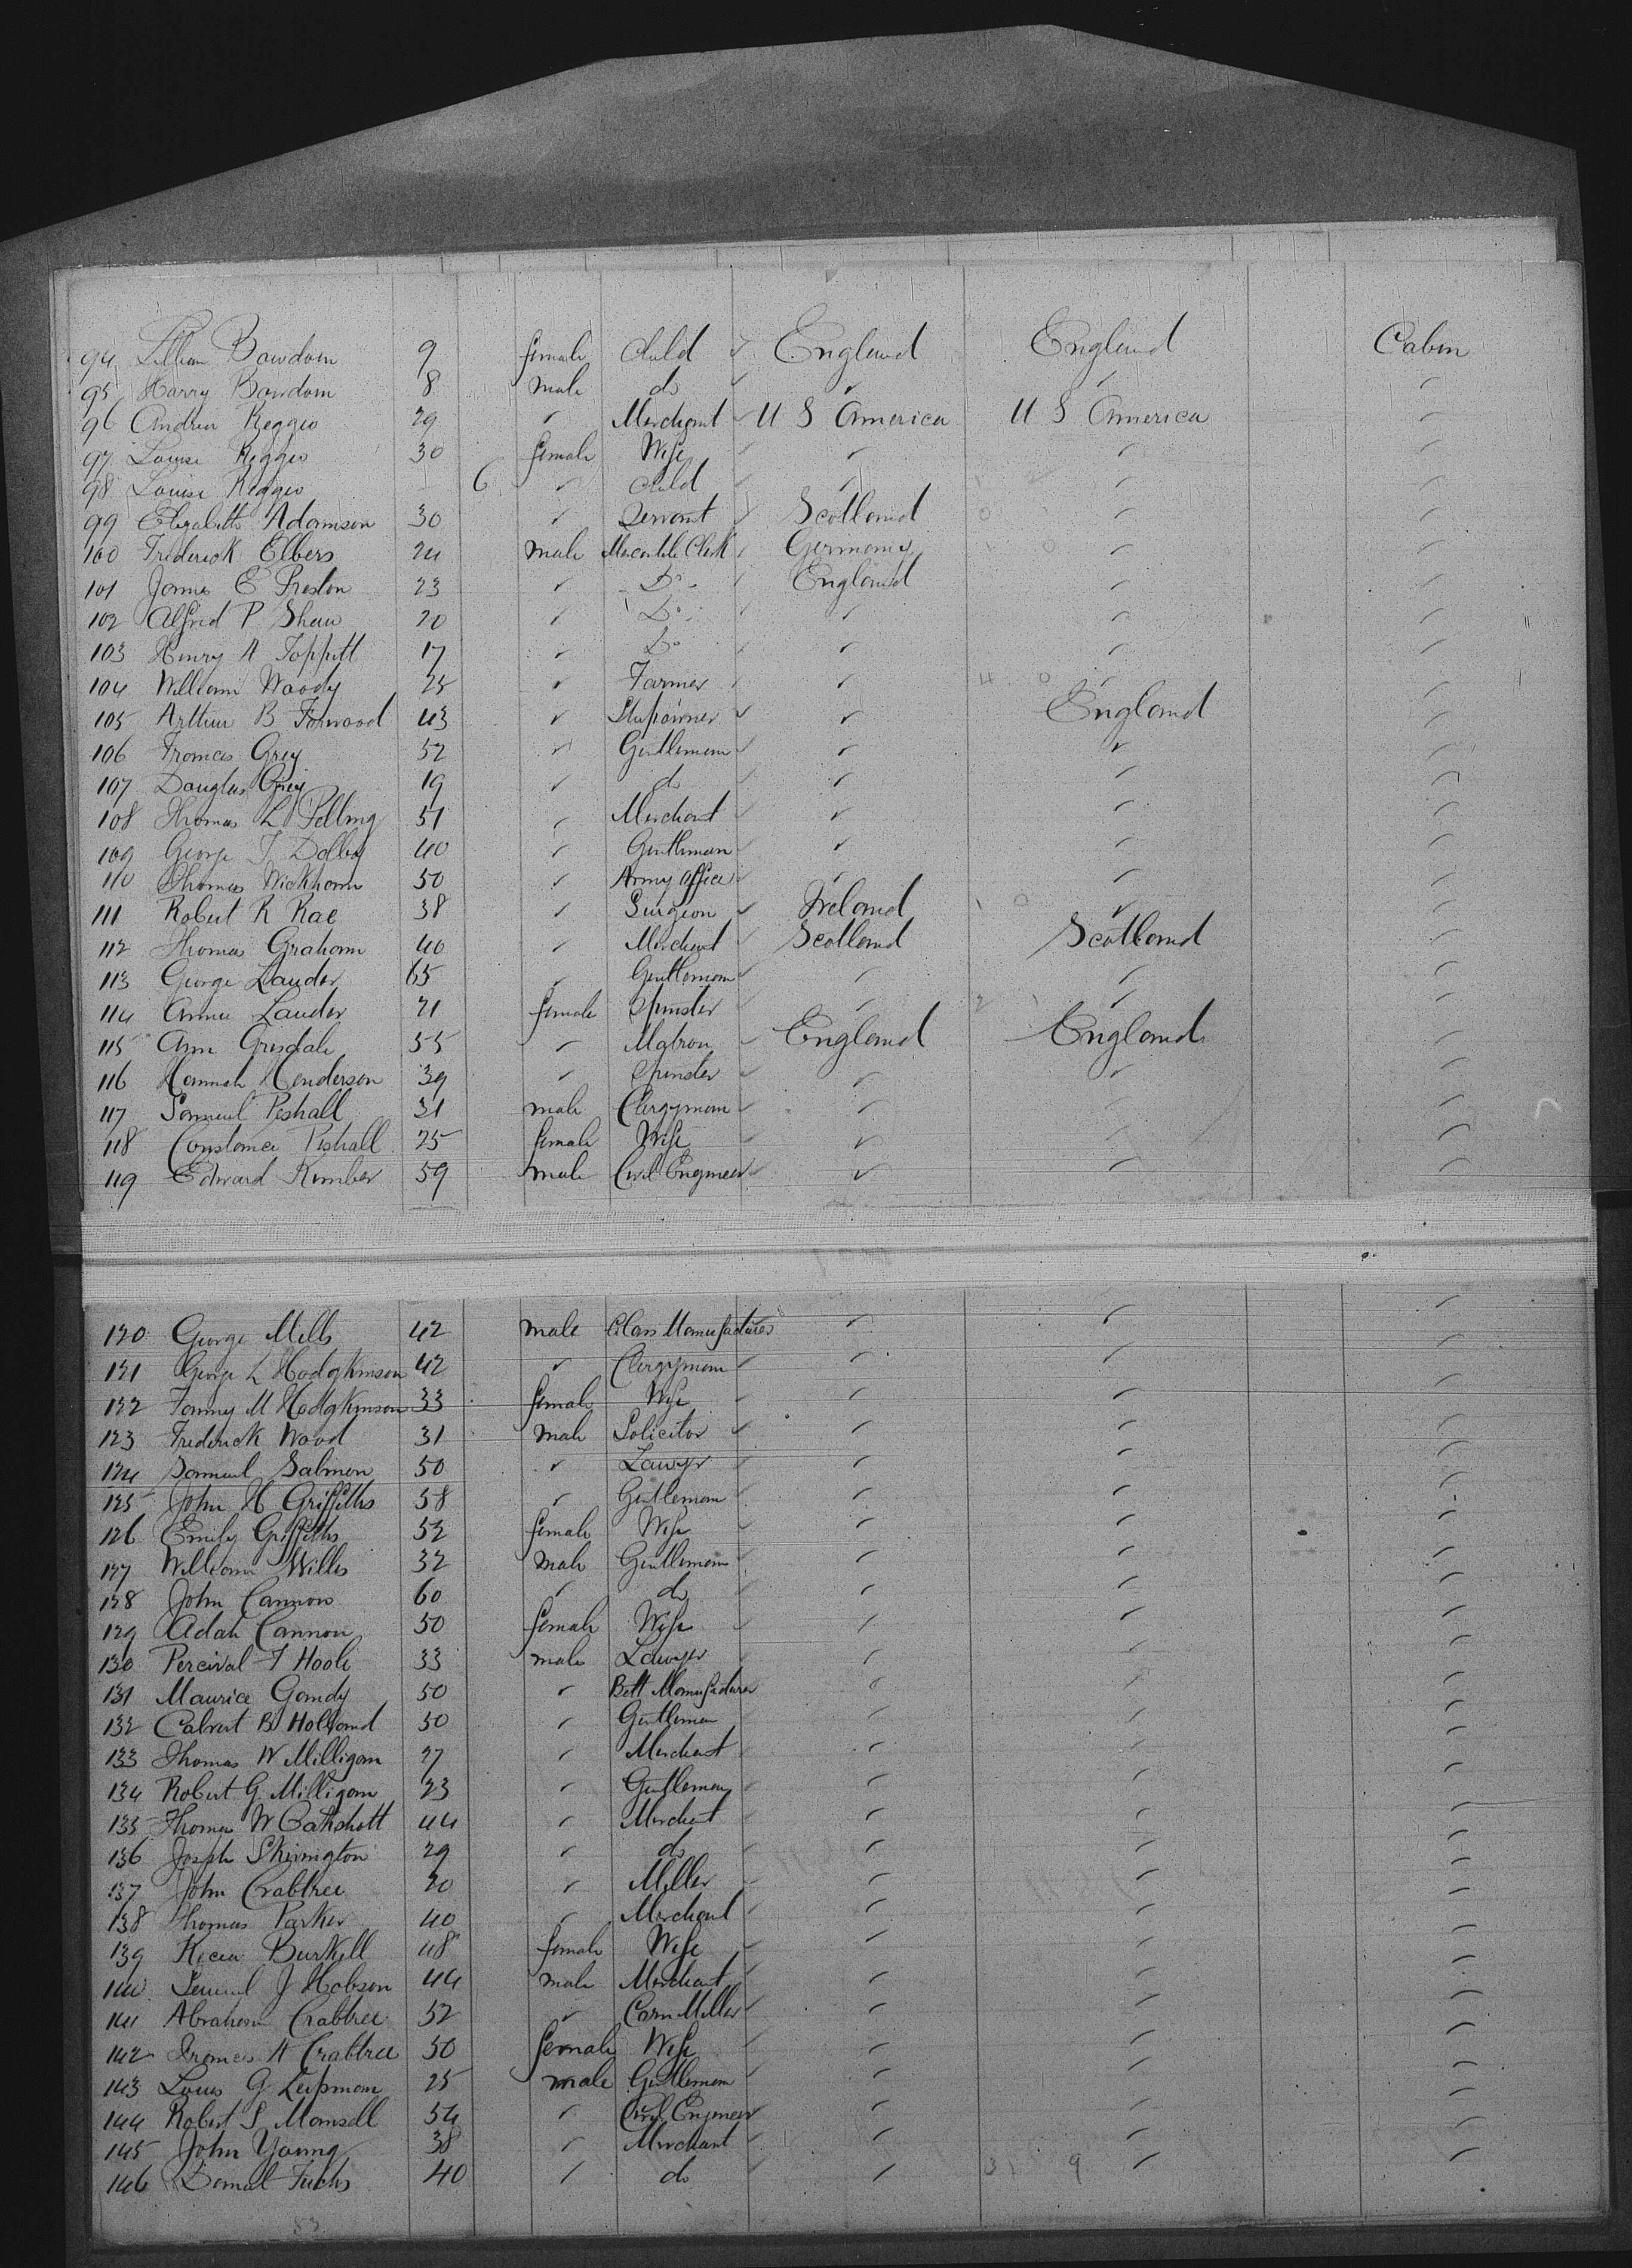 94 Lillian Bowdom 9 female Child ✓ England England Cabin
95 Harry Bowdom 8 male do ✓ ✓ ✓ ✓
96 Andrew Reggio 29 ✓ Merchant ✓ U S America U S America ✓
97 Louise Reggio 30 female Wife ✓ ✓ ✓ ✓
98 Louise Reggio 6 ✓ Child ✓ ✓ ✓ ✓
99 Elizabeth Adamson 30 ✓ Servant ✓ Scotland ✓ ✓
100 Frederick Elbers 24 male Clerk ✓ Germany ✓ ✓
101 James E Preston 23 ✓ Do ✓ England ✓ ✓
102 Alfred P Shaw 20 ✓ Do ✓ ✓ ✓ ✓
103 Henry A Toppitt 17 ✓ Do ✓ ✓ ✓ ✓
104 William Woody 25 ✓ Farmer ✓ ✓ ✓ ✓
105 Arthur B Forwood 43 ✓ Shipowner ✓ ✓ England ✓
106 Frances Grey 52 ✓ Gentleman ✓ ✓ ✓ ✓
107 Douglas Grey 19 ✓ do ✓ ✓ ✓ ✓
108 Thomas L Pelling 51 ✓ Merchant ✓ ✓ ✓
109 George T Dolby 40 ✓ Gentleman ✓ ✓ ✓ ✓
110 Thomas Wickham 50 ✓ Army Officer ✓ ✓ ✓ ✓
111 Robert R Rae 38 ✓ Surgeon ✓ Ireland ✓ ✓
112 Thomas Graham 40 ✓ Merchant ✓ Scotland Scotland ✓
113 George Lauder 65 ✓ Gentleman ✓ ✓ ✓ ✓
114 Annie Lauder 21 female Spinster ✓ ✓ ✓ ✓
115 Ann Grisdale 55 ✓ Matron ✓ England England ✓
116 Hannah Henderson 39 ✓ Spinster ✓ ✓ ✓ ✓
117 Samuel Peshall 31 male Clergyman ✓ ✓ ✓ ✓
118 Constance Peshall 25 female Wife ✓ ✓ ✓ ✓
119 Edward Kimber 59 male Civil Engineer ✓ ✓ ✓ ✓
120 George Mills 42 male Manufacturer ✓ ✓ ✓
121 George L Hodgkinson 42 ✓ Clergyman ✓ ✓ ✓ ✓
122 Fanny M Hodgkinson 33 female Wife ✓ ✓ ✓ ✓
123 Frederick Wood 31 male Solicitor ✓ ✓ ✓ ✓
124 Samuel Salmon 50 ✓ Lawyer ✓ ✓ ✓ ✓
125 John H Griffiths 58 ✓ Gentleman ✓ ✓ ✓ ✓
126 Emily Griffiths 52 female Wife ✓ ✓ ✓ ✓
127 William Willis 32 male Gentleman ✓ ✓ ✓ ✓
128 John Cannon 60 ✓ do ✓ ✓ ✓ ✓
129 Adah Cannon 50 female Wife ✓ ✓ ✓ ✓
130 Percival F Hoole 33 male Lawyer ✓ ✓ ✓ ✓
131 Maurice Gandy 50 ✓ Belt Manufacturer ✓ ✓ ✓
132 Calvert B Holland 50 ✓ Gentleman ✓ ✓ ✓ ✓
133 Thomas W Milligan 27 ✓ Merchant ✓ ✓ ✓ ✓
134 Robert G Milligan 23 ✓ Gentleman ✓ ✓ ✓ ✓
135 Thomas W Oakshott 44 ✓ Merchant ✓ ✓ ✓ ✓
136 Joseph Skivington 29 ✓ do ✓ ✓ ✓ ✓
137 John Crabtree 20 ✓ Miller ✓ ✓ ✓ ✓
138 Thomas Parker 40 ✓ Merchant ✓ ✓ ✓ ✓
139 Burkill 48 female Wife ✓ ✓ ✓ ✓
140 J Hobson 44 male Merchant ✓ ✓ ✓ ✓
141 Abraham Crabtree 52 ✓ Corn Miller ✓ ✓ ✓ ✓
142 Frances A Crabtree 50 female Wife ✓ ✓ ✓ ✓
143 Louis G Leipman 25 male Gentleman ✓ ✓ ✓ ✓
144 Robert S Mansell 54 ✓ Civil Engineer ✓ ✓ ✓ ✓
145 John Young 38 ✓ Merchant ✓ ✓ ✓ ✓
146 Fuchs 40 ✓ do ✓ ✓ ✓